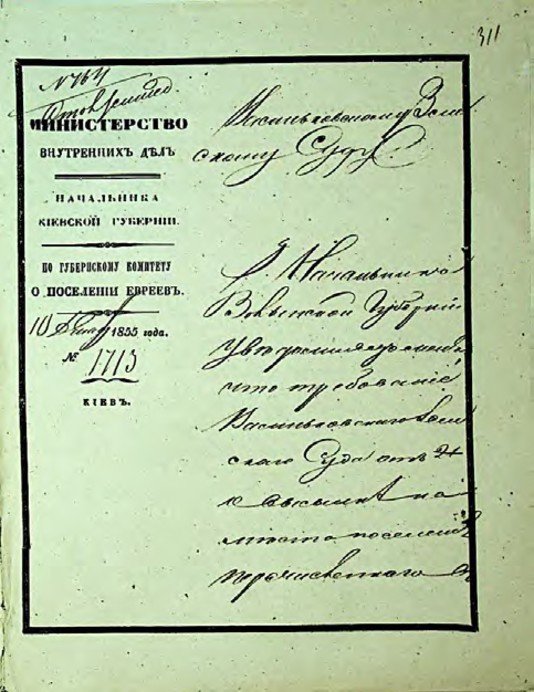 311
№ 764
МИНИСТЕРСТВО
ВНУТРЕННИХЪ ДѢЛЪ
НАЧАЛЬНИКА
КІЕВСКОЙ ГУБЕРНІИ.
ПО ГУБЕРНСКОМУ КОМИТЕТУ
О ПОСЕЛЕНІИ ЕВРЕЕВЪ.
10 1855 года.
№ 1713
КІЕВЪ.
Васильковскому Зем
скому Суду
Г. Начальникъ
Волынской Губерніи
что требованіе
Васильковскаго Зем
скаго Суда отъ 24
о высылкѣ на
мѣсто поселенія